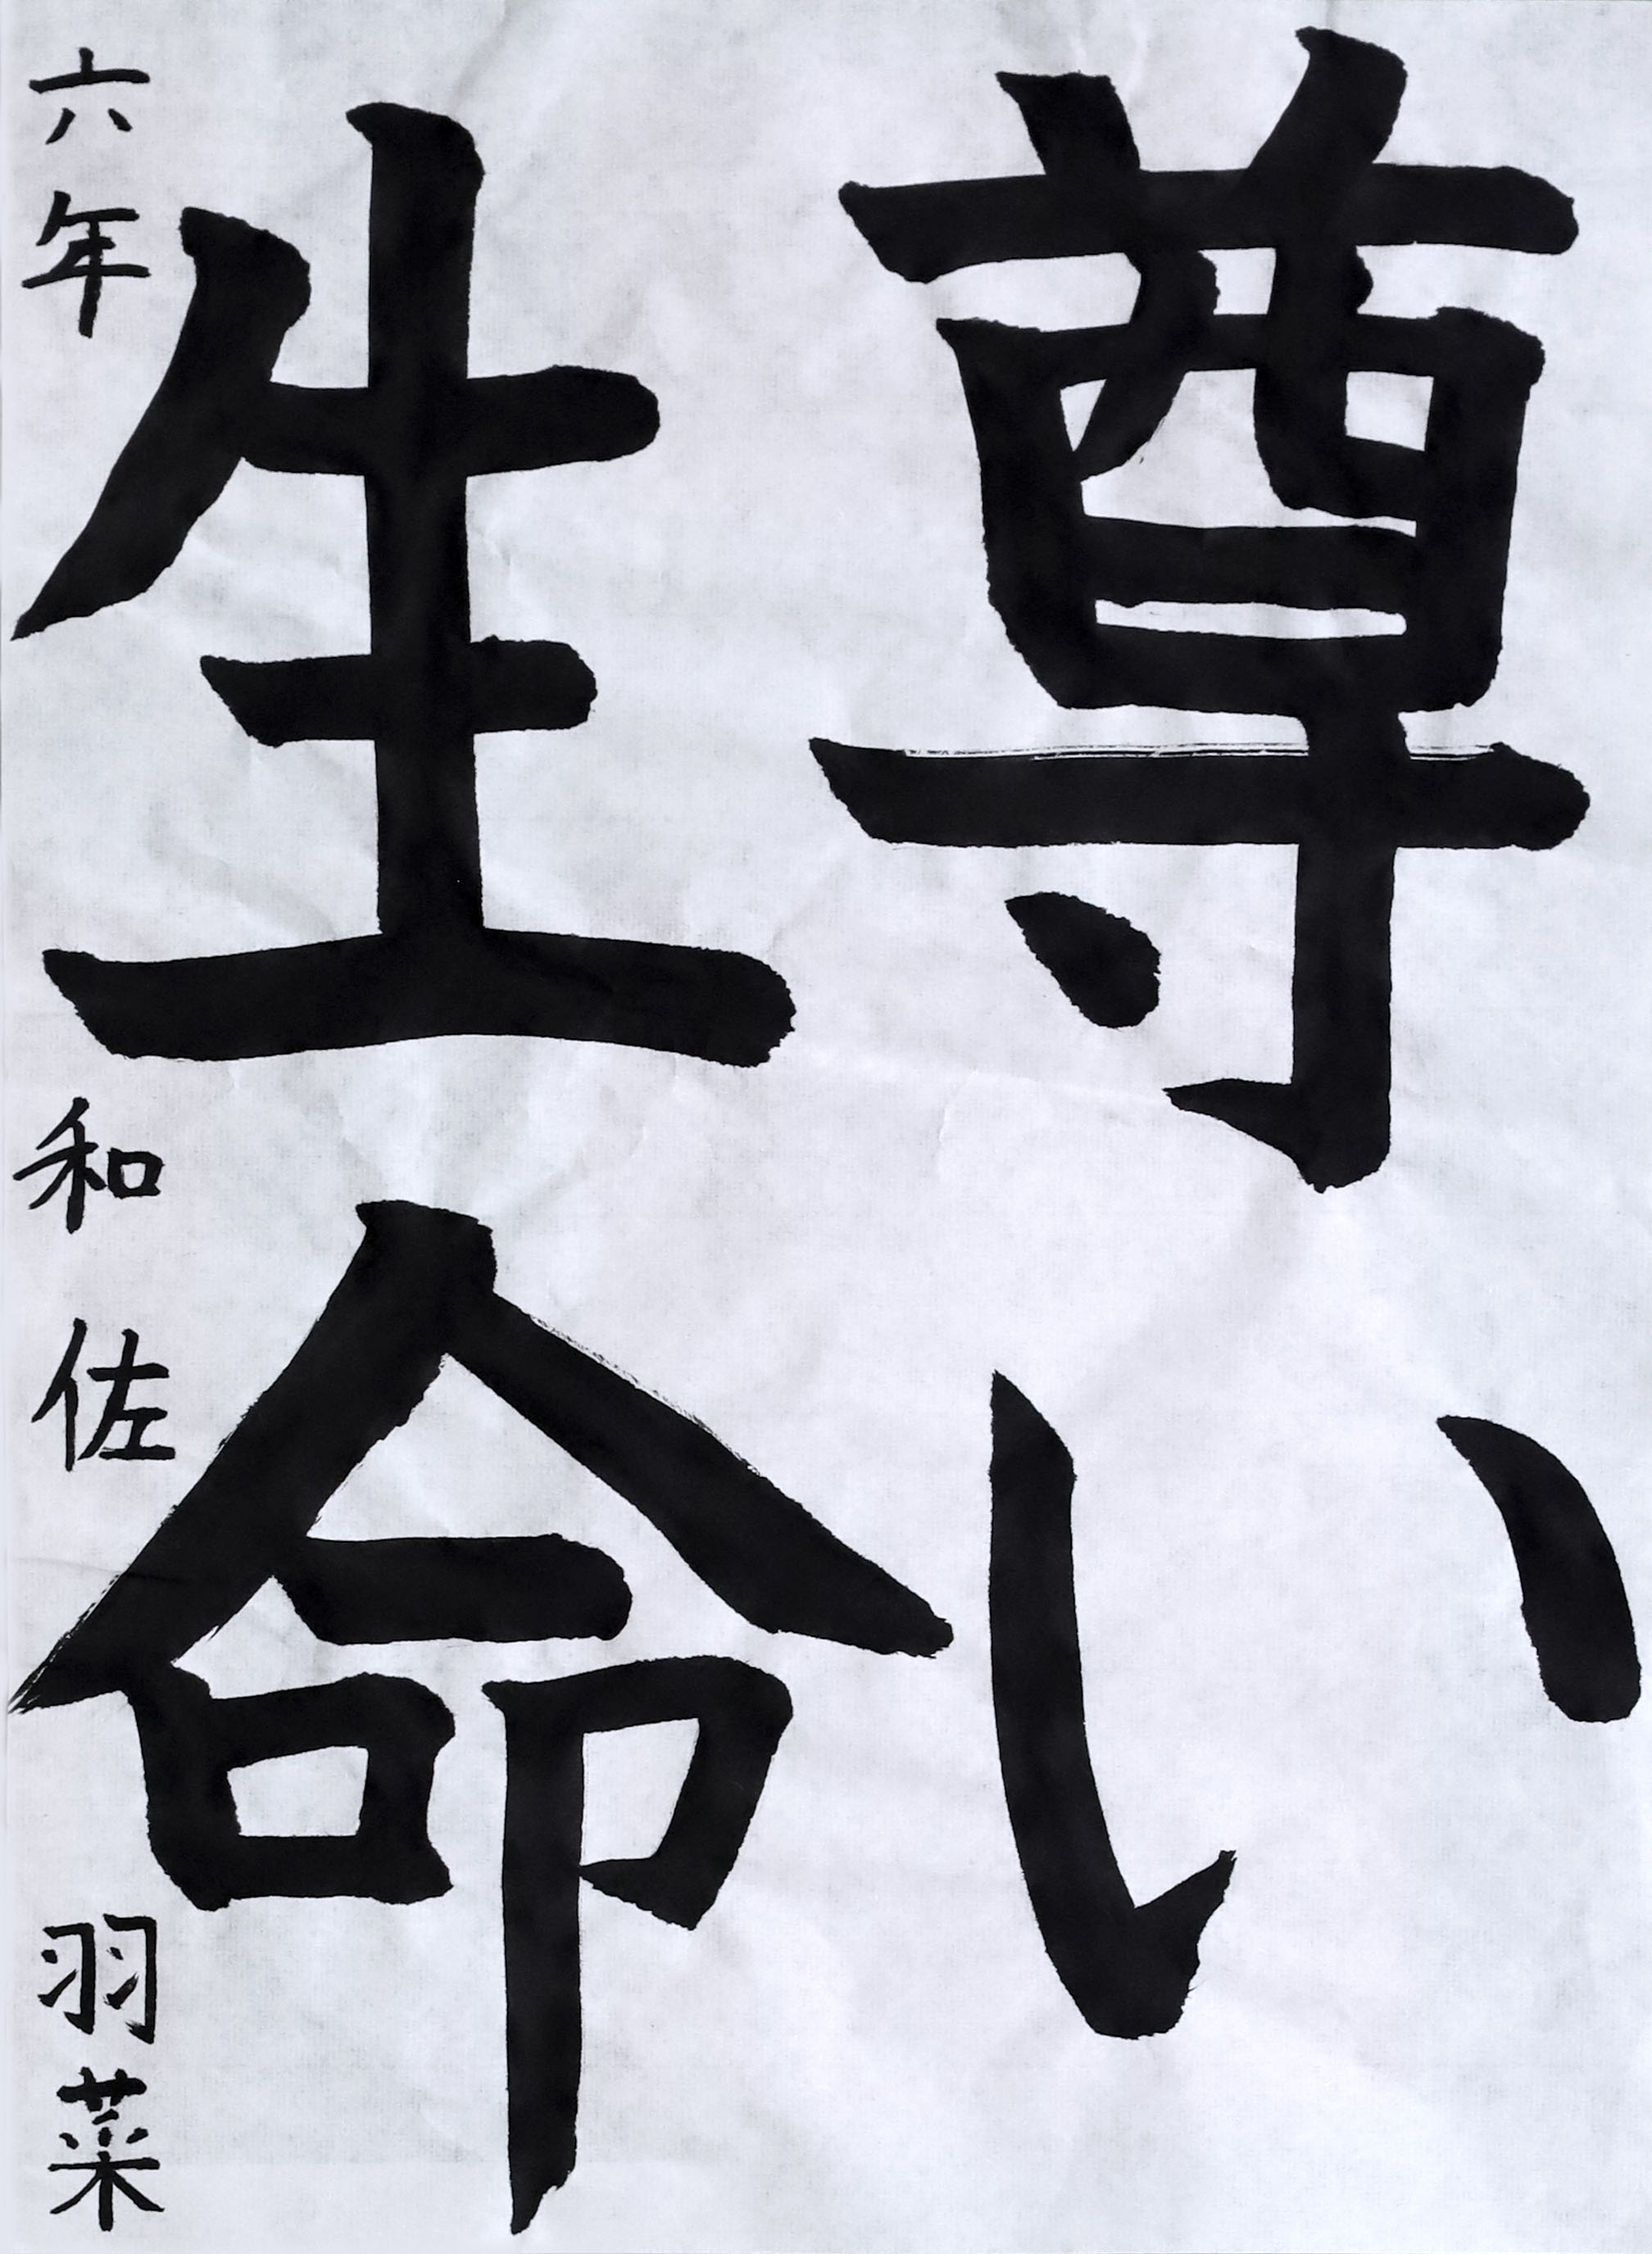 尊い
生命
六年 和佐 羽菜